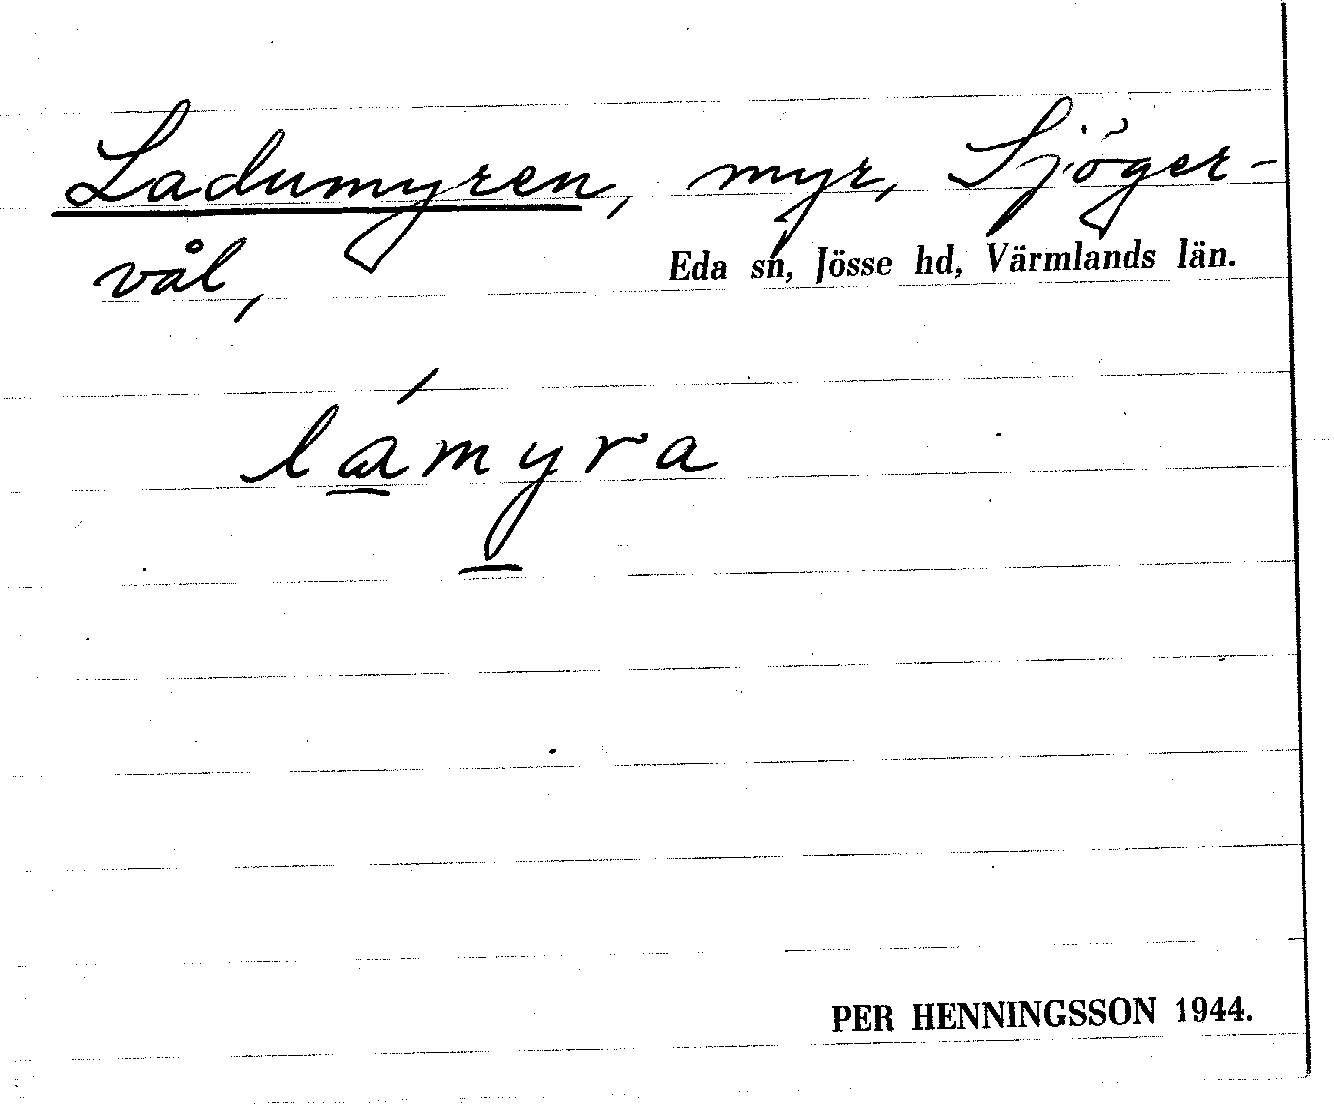 Ladumyren, myr, Sjöger-
vål,
Eda sn, Jösse hd, Värmlands län.
lámyra
PER HENNINGSSON 1944.